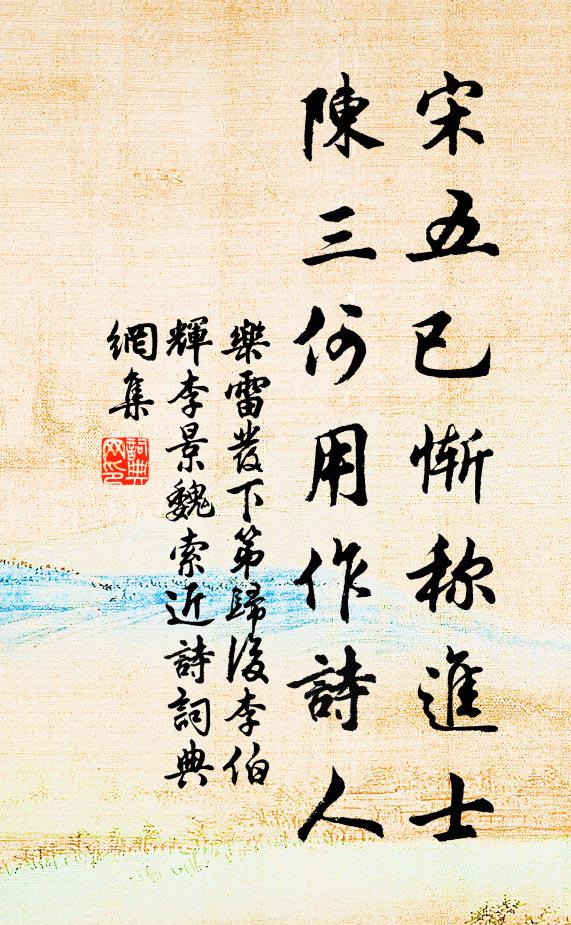 宋五已慚称進士
陳三何用作詩人
樂雷發下第歸後李伯
輝李景魏索近詩詞典
網集
詞典
网印